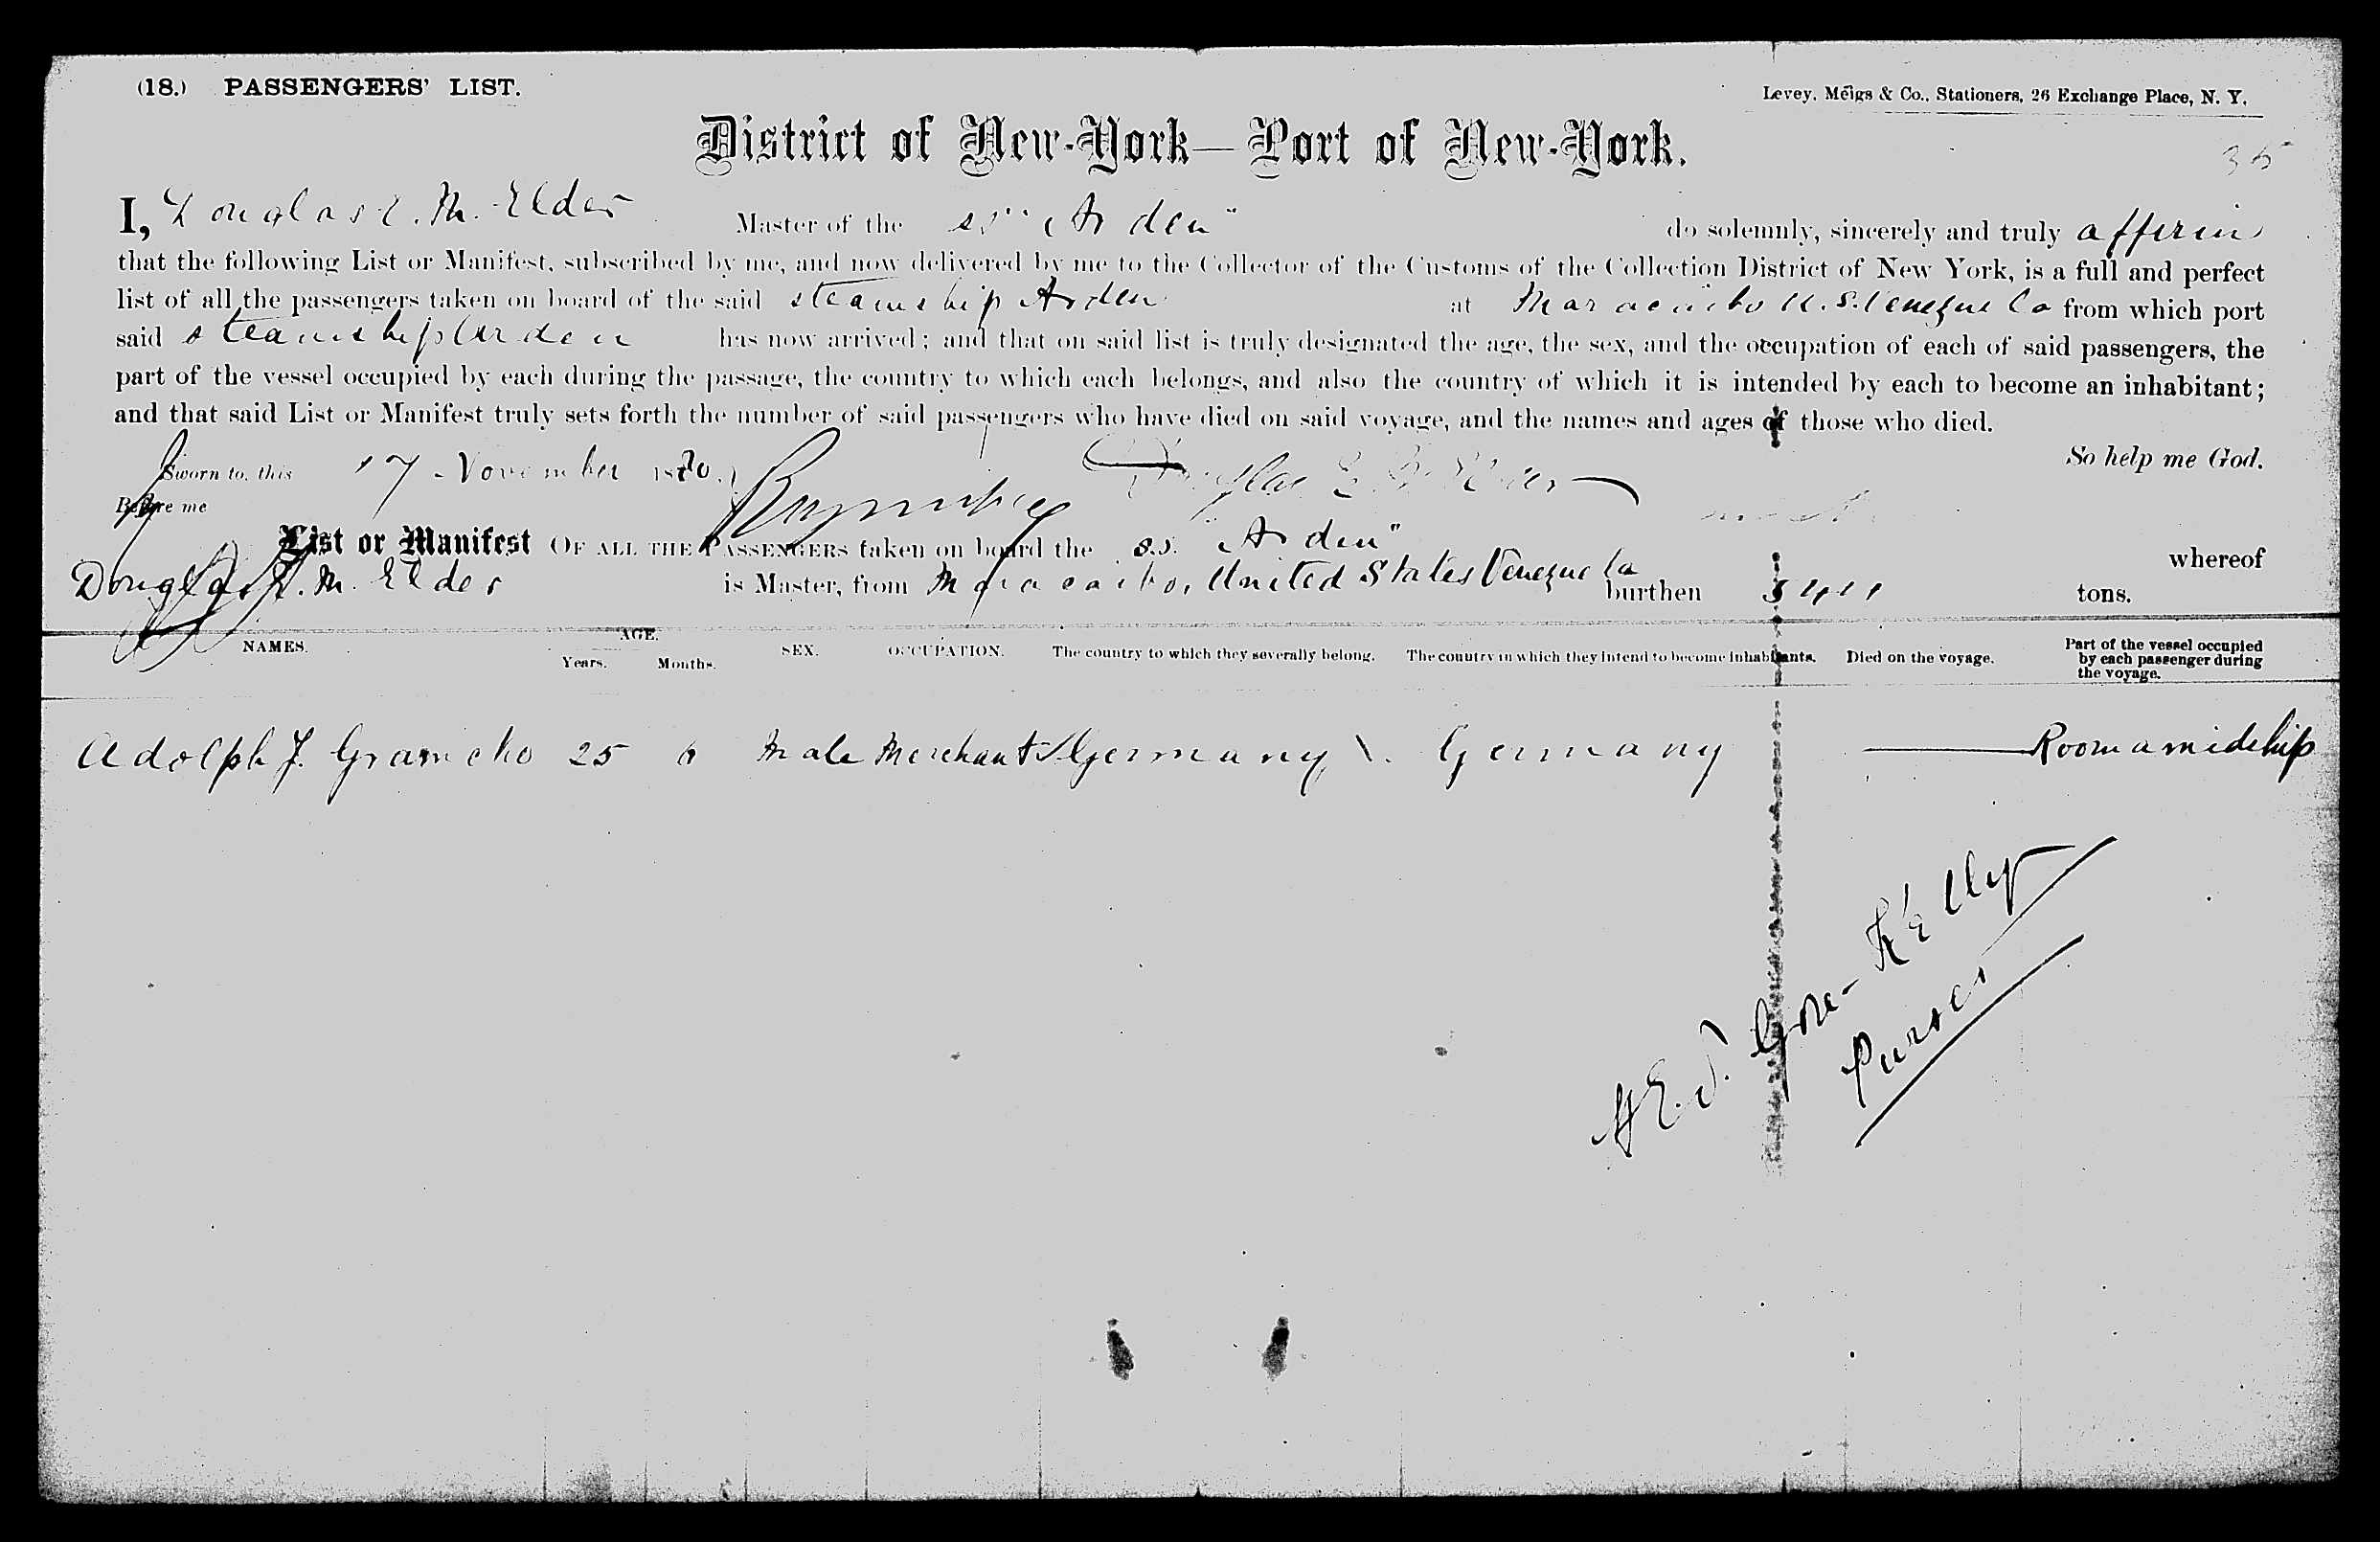 (18.) PASSENGERS' LIST.
Levey, Meigs & Co., Stationers, 26 Exchange Place, N. Y.
District of New-York—Port of New-York.
35
I, Douglas E. M. Elder Master of the ss "Arden" do solemnly, sincerely and truly affirm
that the following List or Manifest, subscribed by me, and now delivered by me to the Collector of the Customs of the Collection District of New York, is a full and perfect
list of all the passengers taken on board of the said steamship Arden at Maracaibo U. S. Venezuela from which port
said steamship Arden has now arrived; and that on said list is truly designated the age, the sex, and the occupation of each of said passengers, the
part of the vessel occupied by each during the passage, the country to which each belongs, and also the country of which it is intended by each to become an inhabitant;
and that said List or Manifest truly sets forth the number of said passengers who have died on said voyage, and the names and ages of those who died.
So help me God.
Sworn to, this 17 November 1880. Douglas E. M. Elder
Before me
List or Manifest OF ALL THE PASSENGERS taken on board the s.s. "Arden" whereof
Douglas E. M. Elder is Master, from Maracaibo, United States Venezuela burthen tons.
NAMES. AGE. Years. Months. SEX. OCCUPATION. The country to which they severally belong. The country in which they intend to become inhabitants. Died on the voyage. Part of the vessel occupied by each passenger during the voyage.
Adolph J. 25 Male Merchant Germany Germany Room amidship
H E. J. Gore-Kelly
Purser